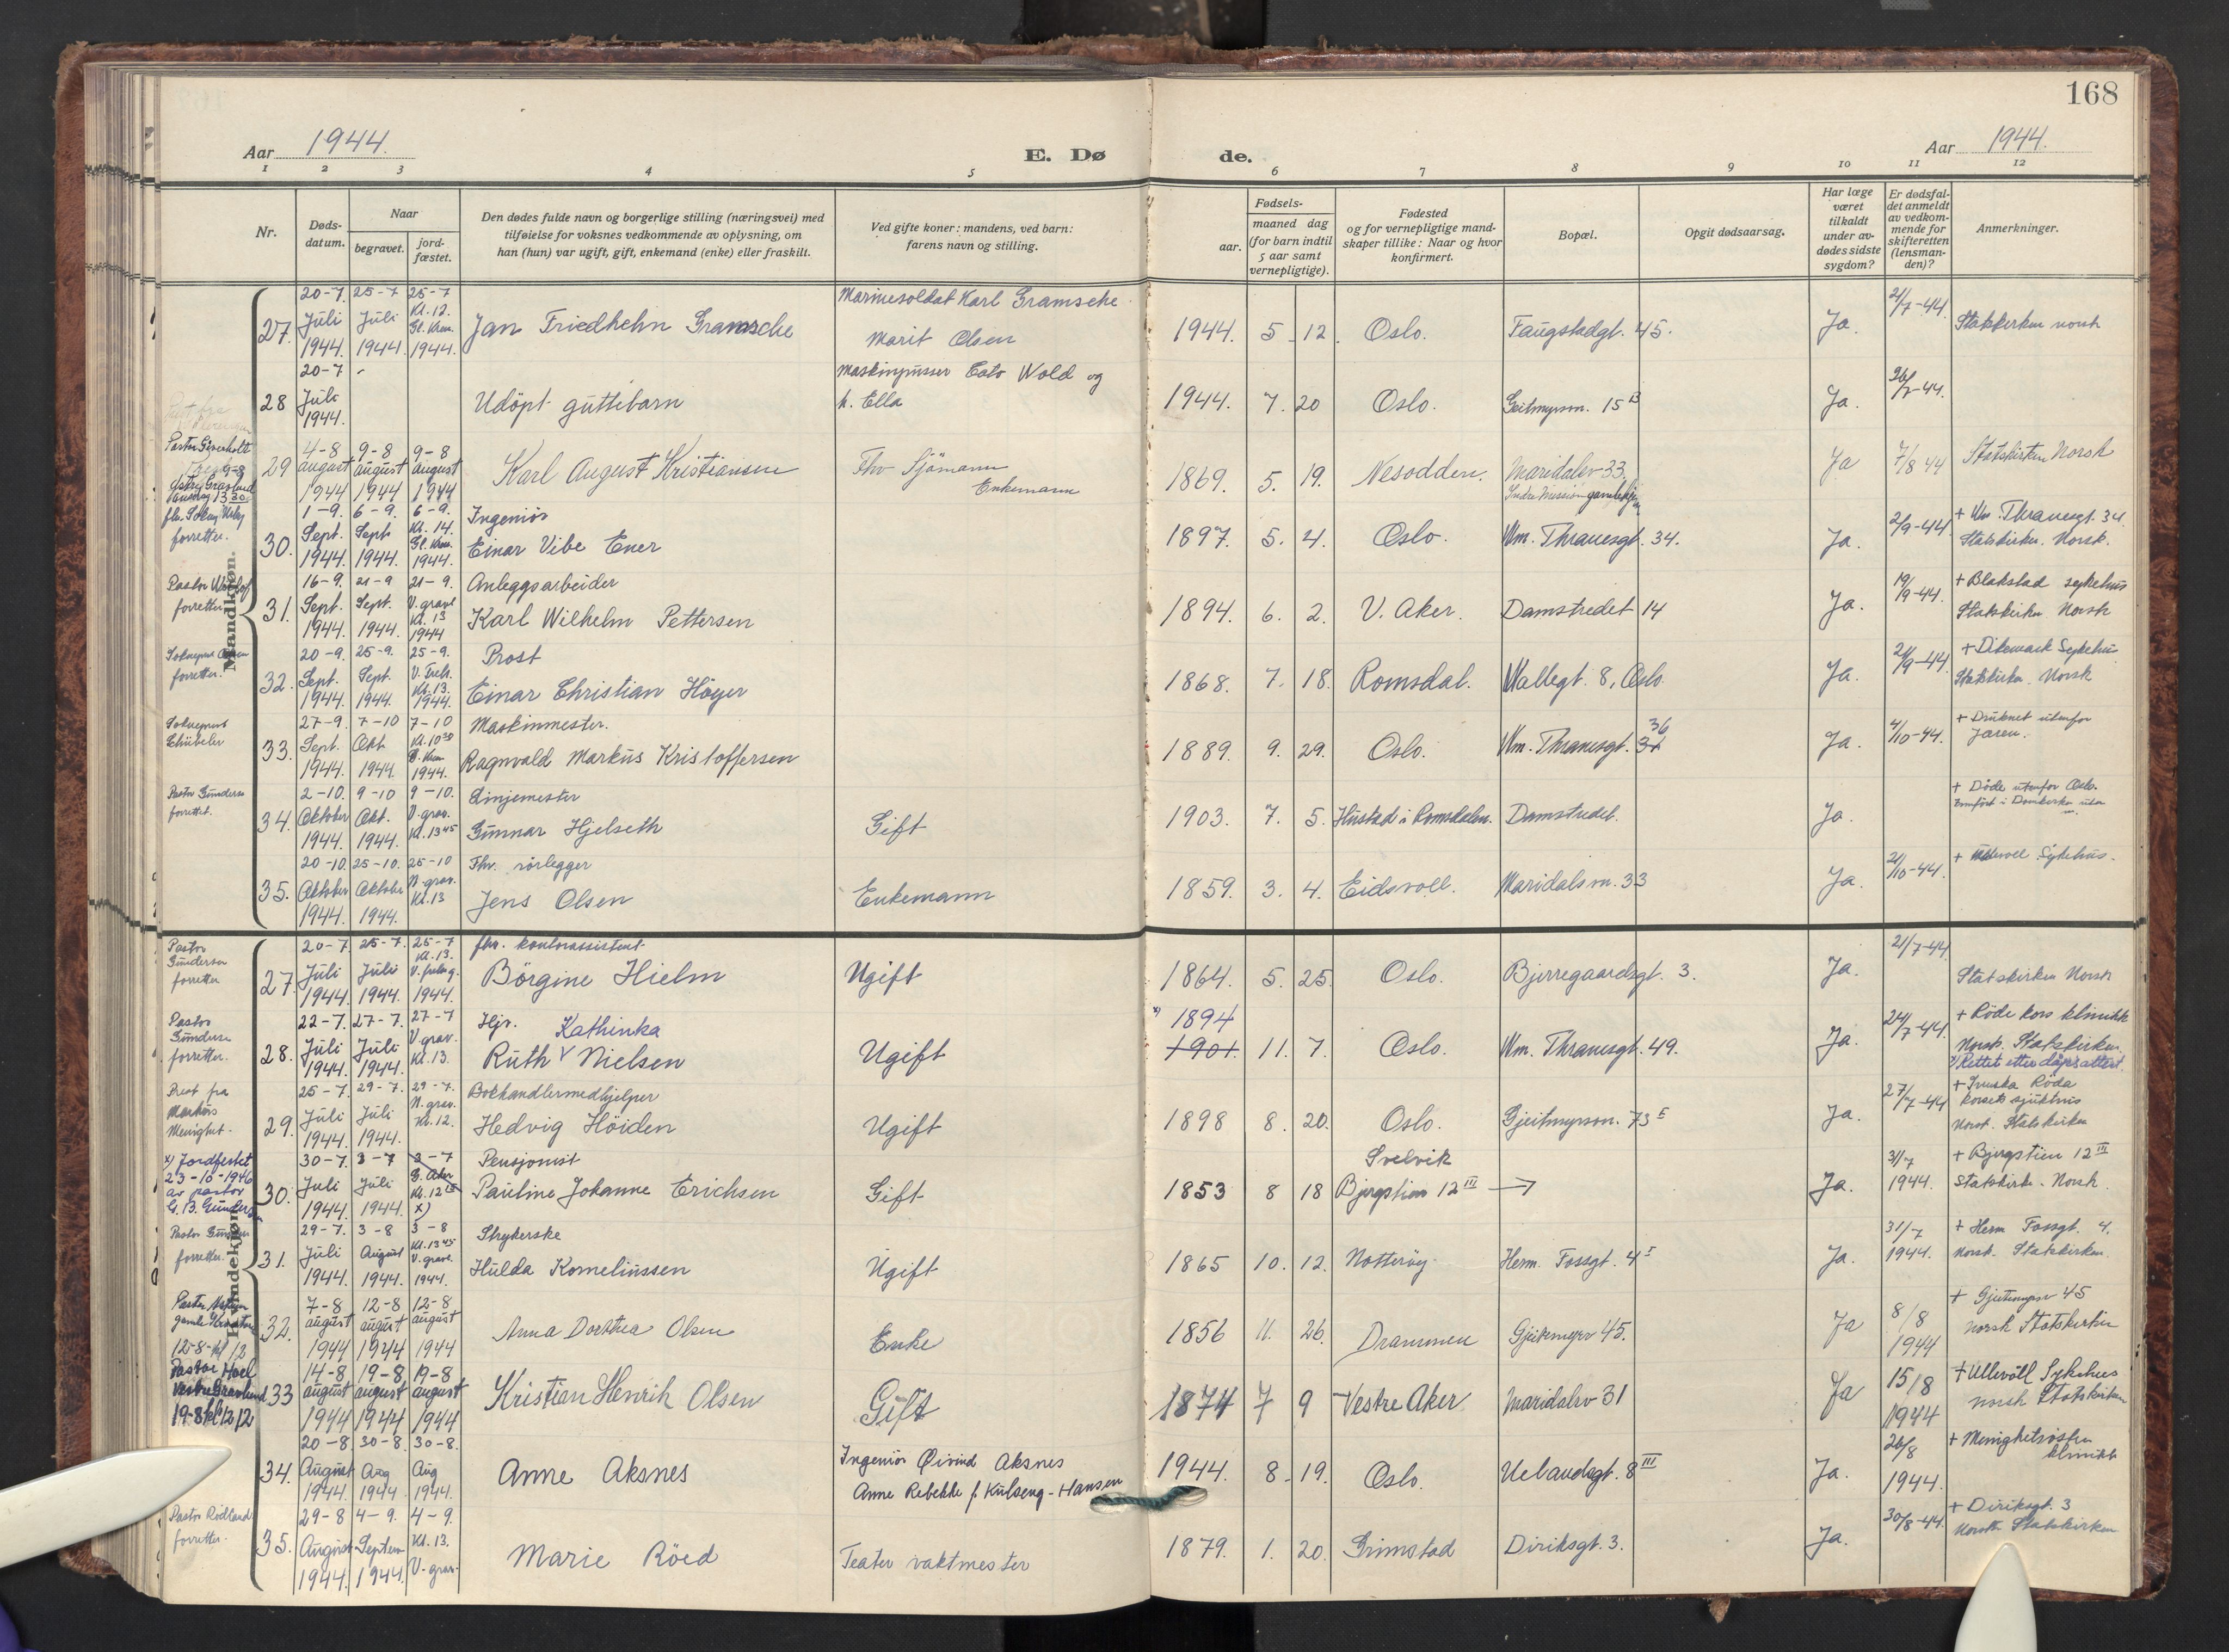 168
Aar 1944.
E. Dø
de.
Aar 1944.
1 2 3 4 5 6 7 8 9 10 11 12
Nr.
Døds-
datum.
Naar
begravet.
jord-
fæstet.
Den dødes fulde navn og borgerlige stilling (næringsvei) med
tilføielse for voksnes vedkommende av oplysning, om
han (hun) var ugift, gift, enkemand (enke) eller fraskilt.
Ved gifte koner: mandens, ved barn:
farens navn og stilling.
Fødsels-
aar.
maaned dag
(for barn indtil
5 aar samt
vernepligtige).
Fødested
og for vernepligtige mand-
skaper tillike: Naar og hvor
konfirmert.
Bopæl.
Opgit dødsaarsag.
Har læge
været
tilkaldt
under av-
dødes sidste
sygdom?
Er dødsfal-
det anmeldt
av vedkom-
mende for
skifteretten
(lensman-
den)?
Anmerkninger.
Mandkjøn.
20-7. 25-7 25-7 Marinesoldat Karl Gramsche
Kl. 12.
27. Juli Juli Gl. Krem. Jan Friedhelm Gramsche 1944. 5 12. Oslo. Faugstadgt. 45. Ja. 21/7-44. Statskirken norsk
1944. 1944. 1944. Marit Olsen
20-7 - Maskinpusser Eato Wold og
28 Juli Udöpt guttebarn h. Ella 1944. 7. 20 Oslo. Geitmyrsvn. 15 B Ja. 26/7-44.
1944.
4-8 9-8 9-8
29 august august august Karl August Kristiansen Fhv Sjömann 1869. 5. 19. Nesodden. Maridalsv 33. Ja 7/8 44 Statskirken Norsk
1944 1944 1944 Enkemann
1-9. 6-9. 6-9. Ingeniör
forretter. 30. Sept. Sept. Kl. 14. Gl. Krem. Einar Vibe Ener 1897. 5. 4. Oslo. Wm. Thranesgt. 34. Ja. 2/9-44. + Wm. Thranesgt. 34.
1944. 1944. 1944. Statskirken. Norsk.
16-9. 21-9 21-9. Anleggsarbeider
forretter 31. Sept. Sept. V. gravl. Kl. 13 Karl Wilhelm Pettersen 1894. 6. 2. V. Aker. Damstredet 14 Ja. 19/9-44. + Blakstad sykehus
1944. 1944. 1944 Statskirken Norsk
20-9. 25-9. 25-9. Prost
forretter. 32. Sept. Sept. Kl. 13. Einar Christian Höyer 1868. 7. 18. Romsdal. Wallegt. 8, Oslo Ja. 21/9-44. + Dikemark Sykehus
1944. 1944. 1944. Statskirken. Norsk
Sokneprest 27-9. 7-10 7-10 Maskinmester.
Schübeler 33. Sept. Okt. Kl. 10 30 Ragnvald Markus Kristoffersen 1889. 9. 29. Oslo. Wm. Thranesgt. 36 Ja. 4/10-44. + Druknet utenfor
1944. 1944. 1944. Jæren.
Pastor Gundersen 2-10. 9-10 9-10. Linjemester
forrettet. 34. Oktober Okt. V. grav. Gunnar Hjelseth Gift 1903. 7. 5. Hustad i Romsdalen. Damstredet. Ja. + Döde utenfor Oslo.
1944. 1944. Kl. 13 45
20-10. 25-10. 25-10 Fhv. rörlegger
35. Oktober Oktober N. grav. Kl. 13 Jens Olsen Enkemann 1859. 3. 4. Eidsvoll. Maridalsvn. 33 Ja. 21/10-44. + Ullevoll Sykehus.
1944. 1944.
Kvindekjøn.
Pastor 20-7. 25-7. 25-7 fhv. kontorassistent
Gundersen Kl. 13.
forretter 27. Juli Juli Börgine Hielm Ugift 1864. 5. 25. Oslo. Bjerregaardsgt. 3. Ja. 21/7-44. Statskirken Norsk
1944. 1944. 1944.
Pastor 22-7. 27-7. 27-7 Hjr. Kathinka x) 1894
Gundersen V. grav.
forretter. 28. Juli Juli Kl. 13. Ruth Nielsen Ugift 1901. 11. 7. Oslo. Wm. Thranesgt. 49. Ja. 24/7-44. + Röde Kors klinikk
1944. 1944. Norsk. Statskirken
x) Rettet etter dåpsattest.
Prest fra 25-7. 29-7. 29-7. Bokhandlermedhjelper
Markus N. grav.
Menighet. 29. Juli Juli Kl. 12. Hedvig Höiden Ugift 1898 8. 20. Oslo. Gjeitmyrsvn. 73 E Ja. 27/7-44 + Svenska Röda
1944. 1944. Korsets sjukhus
Norsk. Statskirken
x) Jordfestet 30-7. 3-7 3-7 Pensjonist Svelvik
23-10-1946
av pastor
G. B. Gundersen 30. Juli Juli Kl. 12 15 Pauline Johanne Erichsen Gift 1853 8 18 Bjergstien 12 III → Ja. 31/7 1944. + Bjergstien 12 III
1944. 1944. x) Statskirk. Norsk
Pastor Gundersen 29-7. 3-8 3-8 Strykerske
forretter. 31. Juli August Kl. 13 45 V. gravl. Hulda Korneliussen Ugift 1865 10. 12. Notteröy. Herm. Fossgt. 4 I Ja. 31/7 1944. + Herm Fossgt. 4.
1944. 1944. 1944. Norsk. Statskirken.
7-8 12-8 12-8
12-8-kl 12 32. august august august Anna Dorthea Olsen Enke 1856 11. 26. Drammen Gjeitmyrsv 45. Ja 8/8 1944 + Gjeitmyrsv 45
1944 1944 1944 norsk Statskirken
Pastor Hoel 14-8 19-8 19-8
Vestre Gravlund 33 august august august Kristian Henrik Olsen Gift 1874 7 9 Vestre Aker Maridalsv 31 Ja 15/8 1944 + Ullevöll Sykehus
19-8 kl 12 1944 1944 1944 norsk Statskirken
20-8. 30-8. 30-8. Ingeniör Öivind Aksnes
34. August Aug Aug Anne Aksnes 1944. 8. 19. Oslo. Uelandsgt. 8 III Ja. 26/8 1944. + Menighetssösten klinikk
1944. 1944 1944. Anne Rebekke f. Kulseng-Hansen
Pastor Rödland 29-8 4-9. 4-9.
forretter. 35. August Septem Kl. 13. Marie Röed Teater vaktmester 1879. 1. 20. Grimstad Diriksgt. 3. Ja. 30/8-44. + Diriksgt. 3
1944. 1944. V. grav. Norsk Statskirken